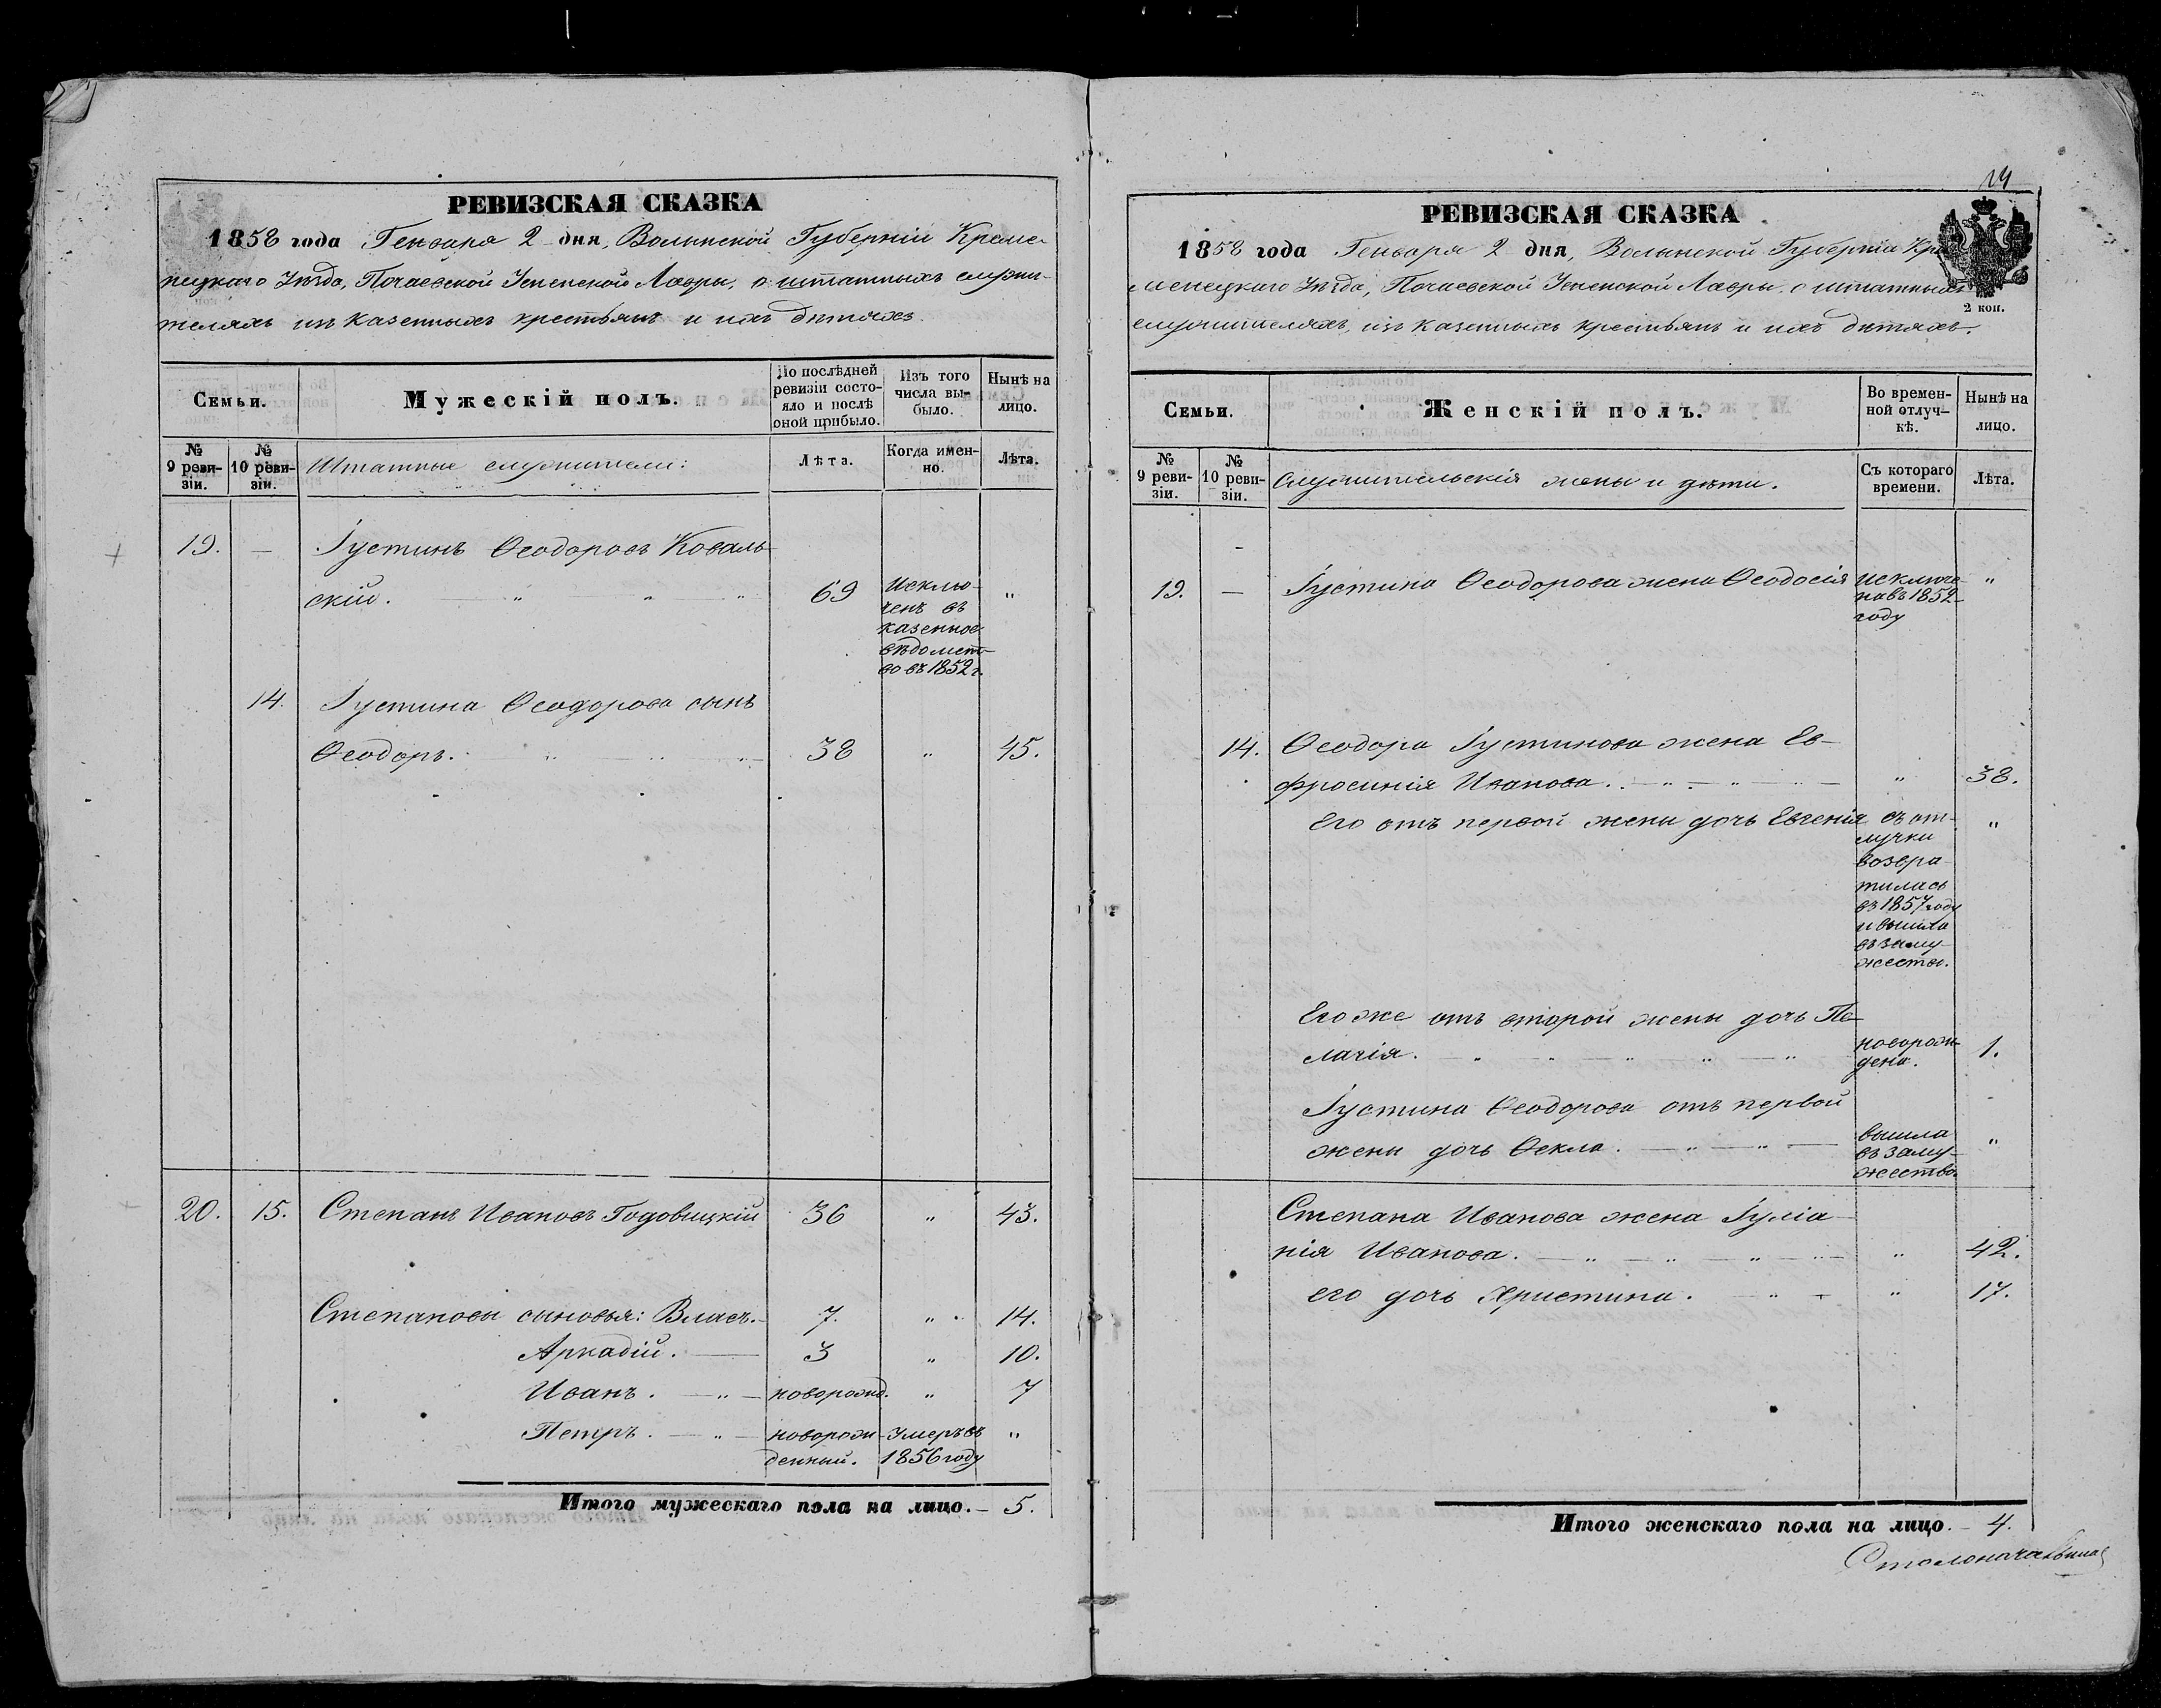 РЕВИЗСКАЯ СКАЗКА
1858 года Генваря 2 дня, Волынской Губерніи Креме-
нецкаго Уѣзда, Почаевской Успенской Лавры, о штатныхъ служи-
теляхъ изъ казенныхъ крестьянъ и ихъ дѣтяхъ.
Семьи.
Мужескій полъ.
По послѣдней
ревизіи состо-
яло и послѣ
оной прибыло.
Изъ того
числа вы-
было.
Нынѣ на
лицо.
№
9 реви-
зіи.
№
10 реви-
зіи.
Штатные служители:
Лѣта.
Когда имен-
но.
Лѣта.
19. — Іустинъ Ѳеодоровъ Коваль-
скій. 69 Исклю- "
ченъ въ
казенное
вѣдомст-
во въ 1852 г.
14. Іустина Ѳеодорова сынъ
Ѳеодоръ. 38 " 45.
20. 15. Степанъ Ивановъ Годовицкій 36 " 43.
Степановы сыновья: Власъ. 7. " 14.
Аркадій. 3 " 10.
Иванъ. новорожд. " 7
Петръ. новорож- Умеръ въ "
денный. 1856 году
Итого мужескаго пола на лицо. — 5.
14
РЕВИЗСКАЯ СКАЗКА
1858 года Генваря 2 дня, Волынской Губерніи Кре-
менецкаго Уѣзда, Почаевской Успенской Лавры, о штатныхъ
2 коп.
служителяхъ, изъ казенныхъ крестьянъ и ихъ дѣтяхъ.
Семьи.
Женскій полъ.
Во времен-
ной отлуч-
кѣ.
Нынѣ на
лицо.
№
9 реви-
зіи.
№
10 реви-
зіи.
Служительскія жены и дѣти.
Съ котораго
времени.
Лѣта.
19. — Іустина Ѳеодорова жена Ѳеодосія исключе- "
на въ 1852
году
14. Ѳеодора Іустинова жена Ев-
фросинія Иванова. " 38.
Его отъ первой жены дочь Евгенія съ от- "
лучки
возвра-
тилась
въ 1857 году
и вышла
въ заму-
жество.
Его же отъ второй жены дочь Пе-
лагія. новорож- 1.
дена.
Іустина Ѳеодорова отъ первой
жены дочь Ѳекла. вышла "
въ заму-
жество.
Степана Иванова жена Іуліа-
нія Иванова. " 42.
его дочь Христина. " 17.
Итого женскаго пола на лицо. — 4.
Столоначальник